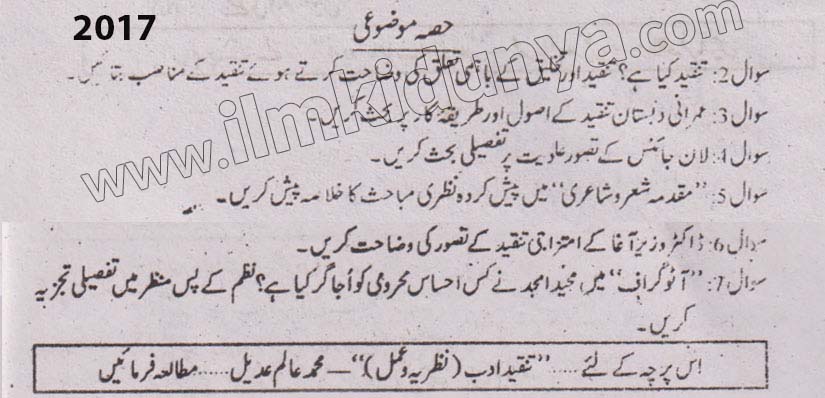 2017
حصہ موضوعی
سوال 2: تنقید کیا ہے؟ تنقید اور تخلیق کے باہمی تعلق کی وضاحت کرتے ہوئے تنقید کے مناصب بتائیں۔
سوال 3: عمرانی دبستان تنقید کے اصول اور طریقہ کار پر بحث کریں۔
سوال 4: لان جائنس کے تصور علویت پر تفصیلی بحث کریں۔
سوال 5: ”مقدمہ شعر و شاعری“ میں پیش کردہ نظری مباحث کا خلاصہ پیش کریں۔
سوال 6: ڈاکٹر وزیر آغا کے امتزاجی تنقید کے تصور کی وضاحت کریں۔
سوال 7: ”آٹوگراف“ میں مجید امجد نے کس احساس محرومی کو اُجاگر کیا ہے؟ نظم کے پس منظر میں تفصیلی تجزیہ
کریں۔
اس پرچہ کے لئے ...... ”تنقید ادب (نظریہ و عمل)“ — محمد عالم عدیل ...... مطالعہ فرمائیں
www.ilmkidunya.com